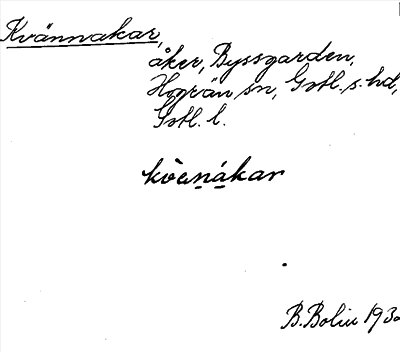 Kvännakar,
åker, Byssgarden,
Hogrän sn, Gotl. s. hd,
Gotl. l.
kv̀enákar
B. Bolin 193